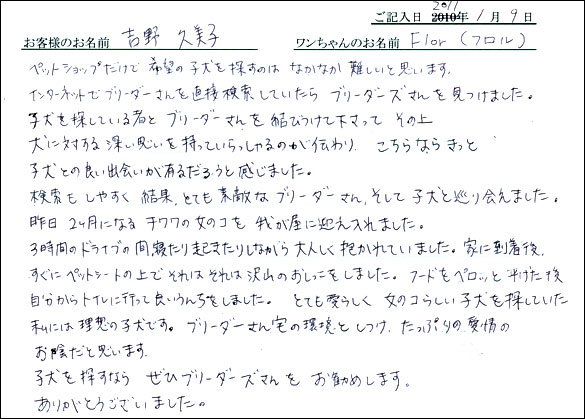 ご記入日 2010年 2011 1月 9日
お客様のお名前 吉野 久美子 ワンちゃんのお名前 Flor (フロル)
ペットショップだけで 希望の子犬を探すのは なかなか 難しいと思います.
インターネットでブリーダーさんを直接検索していたら ブリーダーズさんを見つけました。
子犬を探している者と ブリーダーさんを 結びつけて下さって その上
犬に対する 深い思いを 持っていらっしゃるのが伝わり、 こちらなら きっと
子犬との良い出会いが有るだろうと感じました。
検索も しやすく 結果、とても 素敵な ブリーダーさん、そして 子犬と巡り会えました。
昨日 2ヶ月になる チワワの女のコを 我が屋に迎え入れました。
3時間のドライブの間 寝たり起きたりしながら 大人しく 抱かれていました。家に到着後、
すぐにペットシートの上で それはそれは 沢山のおしっこをしました。 フードをペロッと 平げた後
自分からトイレに行って良いうんちをしました。 とても愛らしく 女のコらしい 子犬を探していた
私には理想の子犬です。 ブリーダーさん宅の環境と しつけ、たっぷりの愛情の
お陰だと思います.
子犬を 探すなら ぜひブリーダーズさんを お勧めします。
ありがとうございました。